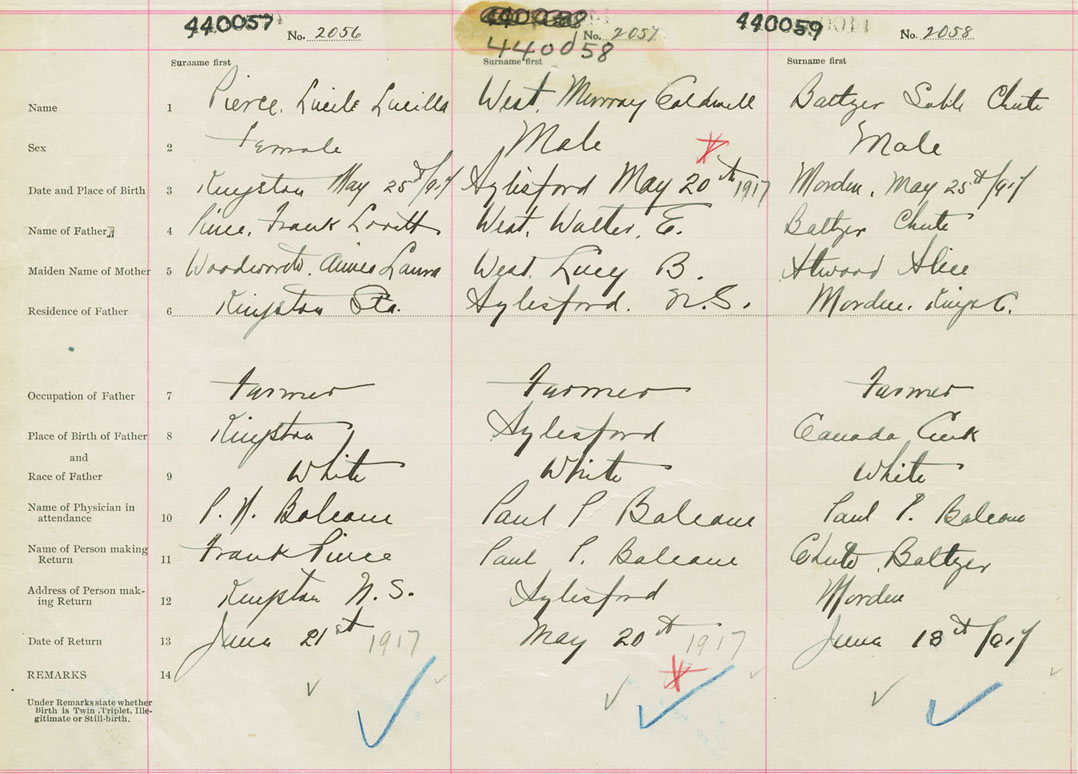 440057 440058 440059
No. 2056 No. 2057 No. 2058
440058
Surname first Surname first Surname first
Name 1 Pierce, Lucile Lucilla West, Murray Caldwell Baltzer Chute
Sex 2 Female Male Male
Date and Place of Birth 3 Kingston May 25th/917 Aylesford May 20th 1917 Morden, May 25th/917
Name of Father 4 Pierce, Frank Lovitt West, Walter, E. Baltzer Chute
Maiden Name of Mother 5 Woodworth, Laura West, Lucy B. Atwood Alice
Residence of Father 6 Kingston Sta. Aylesford. N.S. Morden, Kings C.
Occupation of Father 7 Farmer Farmer Farmer
Place of Birth of Father 8 Kingston Aylesford Canada Creek
and
Race of Father 9 White White White
Name of Physician in
attendance 10 P. N. Balcom Paul P Balcom Paul P. Balcom
Name of Person making
Return 11 Frank Pierce Paul P. Balcom Chute, Baltzer
Address of Person mak-
ing Return 12 Kingston N.S. Aylesford Morden
Date of Return 13 June 21st 1917 May 20th 1917 June 18th/917
REMARKS 14
Under Remarks state whether
Birth is Twin, Triplet, Ille-
gitimate or Still-birth.